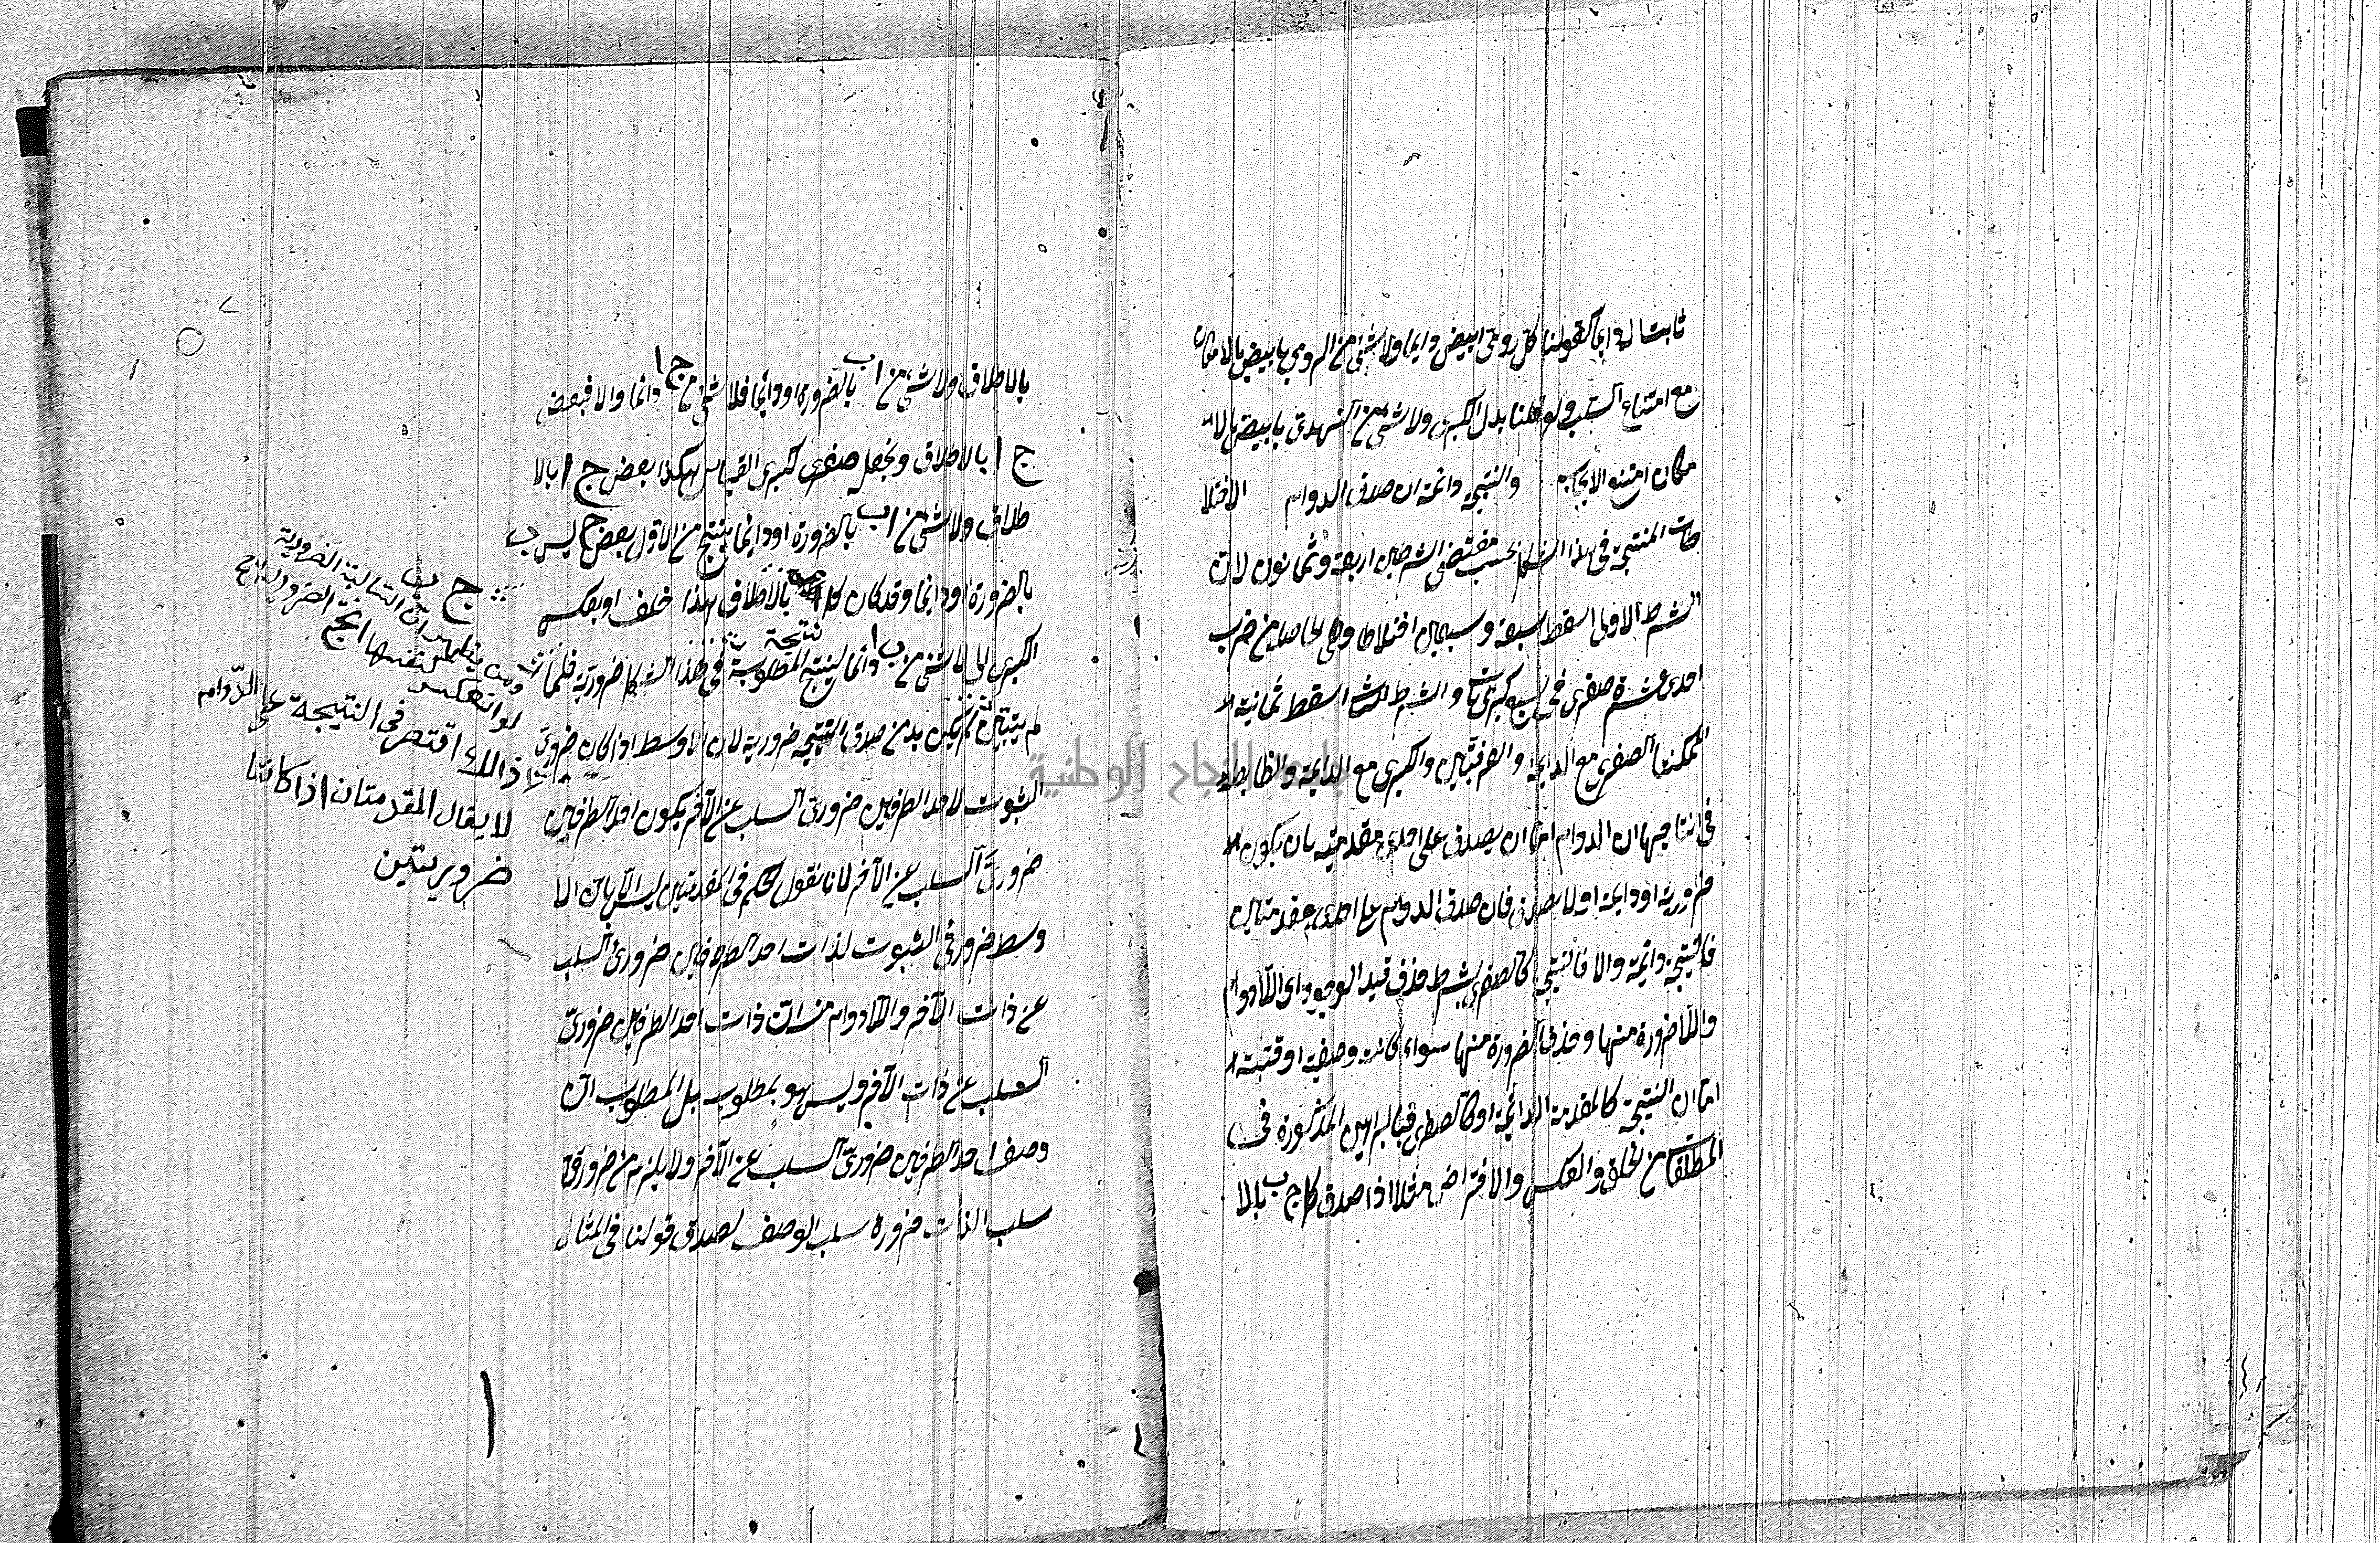 ثابتا له دايما كقولنا كل رومي ابيض دايما ولا شئ من الرومي بابيض بالامكان
مع امتناع السلب ولو قلنا بدل الكبرى ولا شئ من الهندي بابيض بالا
مكان امتنع الايجاب والنتيجة دائمة ان صدق الدوام الاختلا
طات المنتجة في هذا الشكل بحسب مقتضى الشرطين اربعة وثمانون لان
الشرط الاول اسقط سبعة وسبعين اختلاطا وهى الحاصلة من ضرب
احدى عشرة صغرى في سبع كبريات والشرط الثاني اسقط ثمانية ا
لممكنتا الصغرى مع الدايمة والعرفيتين والكبرى مع الدايمة والضابطة
في انتاجها ان الدوام اما ان يصدق على احدى مقدمتيه بان يكون ا
ضرورية او دايمة اولا يصدق فان صدق الدوام على احدى مقدمتين
فالنتيجة دائمة والا فالنتيجة كالصغرى بشرط حذف قيد الوجود اى اللادوام
واللاضرورة منها وحذف الضرورة منها سواء كانت وصفية او وقتية ا
اما ان النتيجة كالمقدمة الدائمة او كالصغرى فبالبراهين المذكورة في
المطلقات من الخلف والعكس والافتراض مثلا اذا صدق كل ج ب بالا
بالاطلاق ولا شئ من ا ب بالضرورة او دائما فلا شئ من ج ا دائما والا فبعض
ج ا بالاطلاق ونجعل صغرى كبرى القياس هكذا بعض ج ا بالا
طلاق ولا شئ من ا ب بالضرورة او دائما ينتج من الاول بعض ج ليس ب
بالضرورة او دائما وقد كان كل ج ب بالاطلاق هذا خلف او بعكس
الكبرى الى لا شئ من ب ا دائما لينتج المطلوبة نتيجة في هذا الشكل ضرورية فلما
لم يتبين لم يكن بد من صدق النتيجة ضرورية لان الاوسط اذا كان ضرورى
الثبوت لاحد الطرفين ضرورى السلب عن الآخر يكون احد الطرفين
ضرورى السلب عن الآخر لانا نقول الحكم في المقدمتين ليس الا بان الا
وسط ضرورى الثبوت لذات احد الطرفين ضرورى السلب
عن ذات الآخر واللادوام منه ان ذات احد الطرفين ضرورى
السلب عن ذات الآخر وليس هو بمطلوب بل المطلوب ان
وصف احد الطرفين ضرورى السلب عن الآخر ولا يلزم من ضرورة
سلب الذات ضرورة سلب الوصف لصدق قولنا في المثال
ج ب
ان السالبة الضرورية
لو انعكس كنفسها انتج الضروريتان
ذالك اقتصر في النتيجة على الدوام
لا يقال المقدمتان اذا كانتا
ضروريتين
جامعة النجاح الوطنية